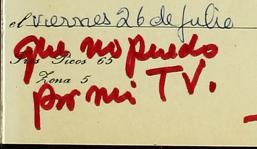 el viernes 26 de julio
que no puedo
Tres Picos 65
Zona 5
por mi TV.